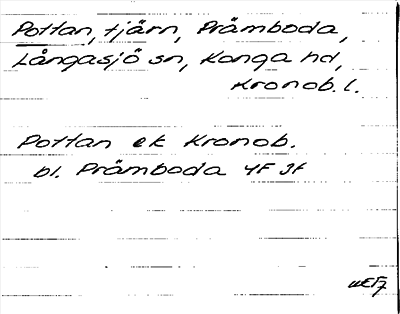 Pottan, tjärn, Pråmboda,
Långasjö sn, Konga hd,
Kronob. l.
Pottan ek Kronob.
bl. Pråmboda 4F 3f